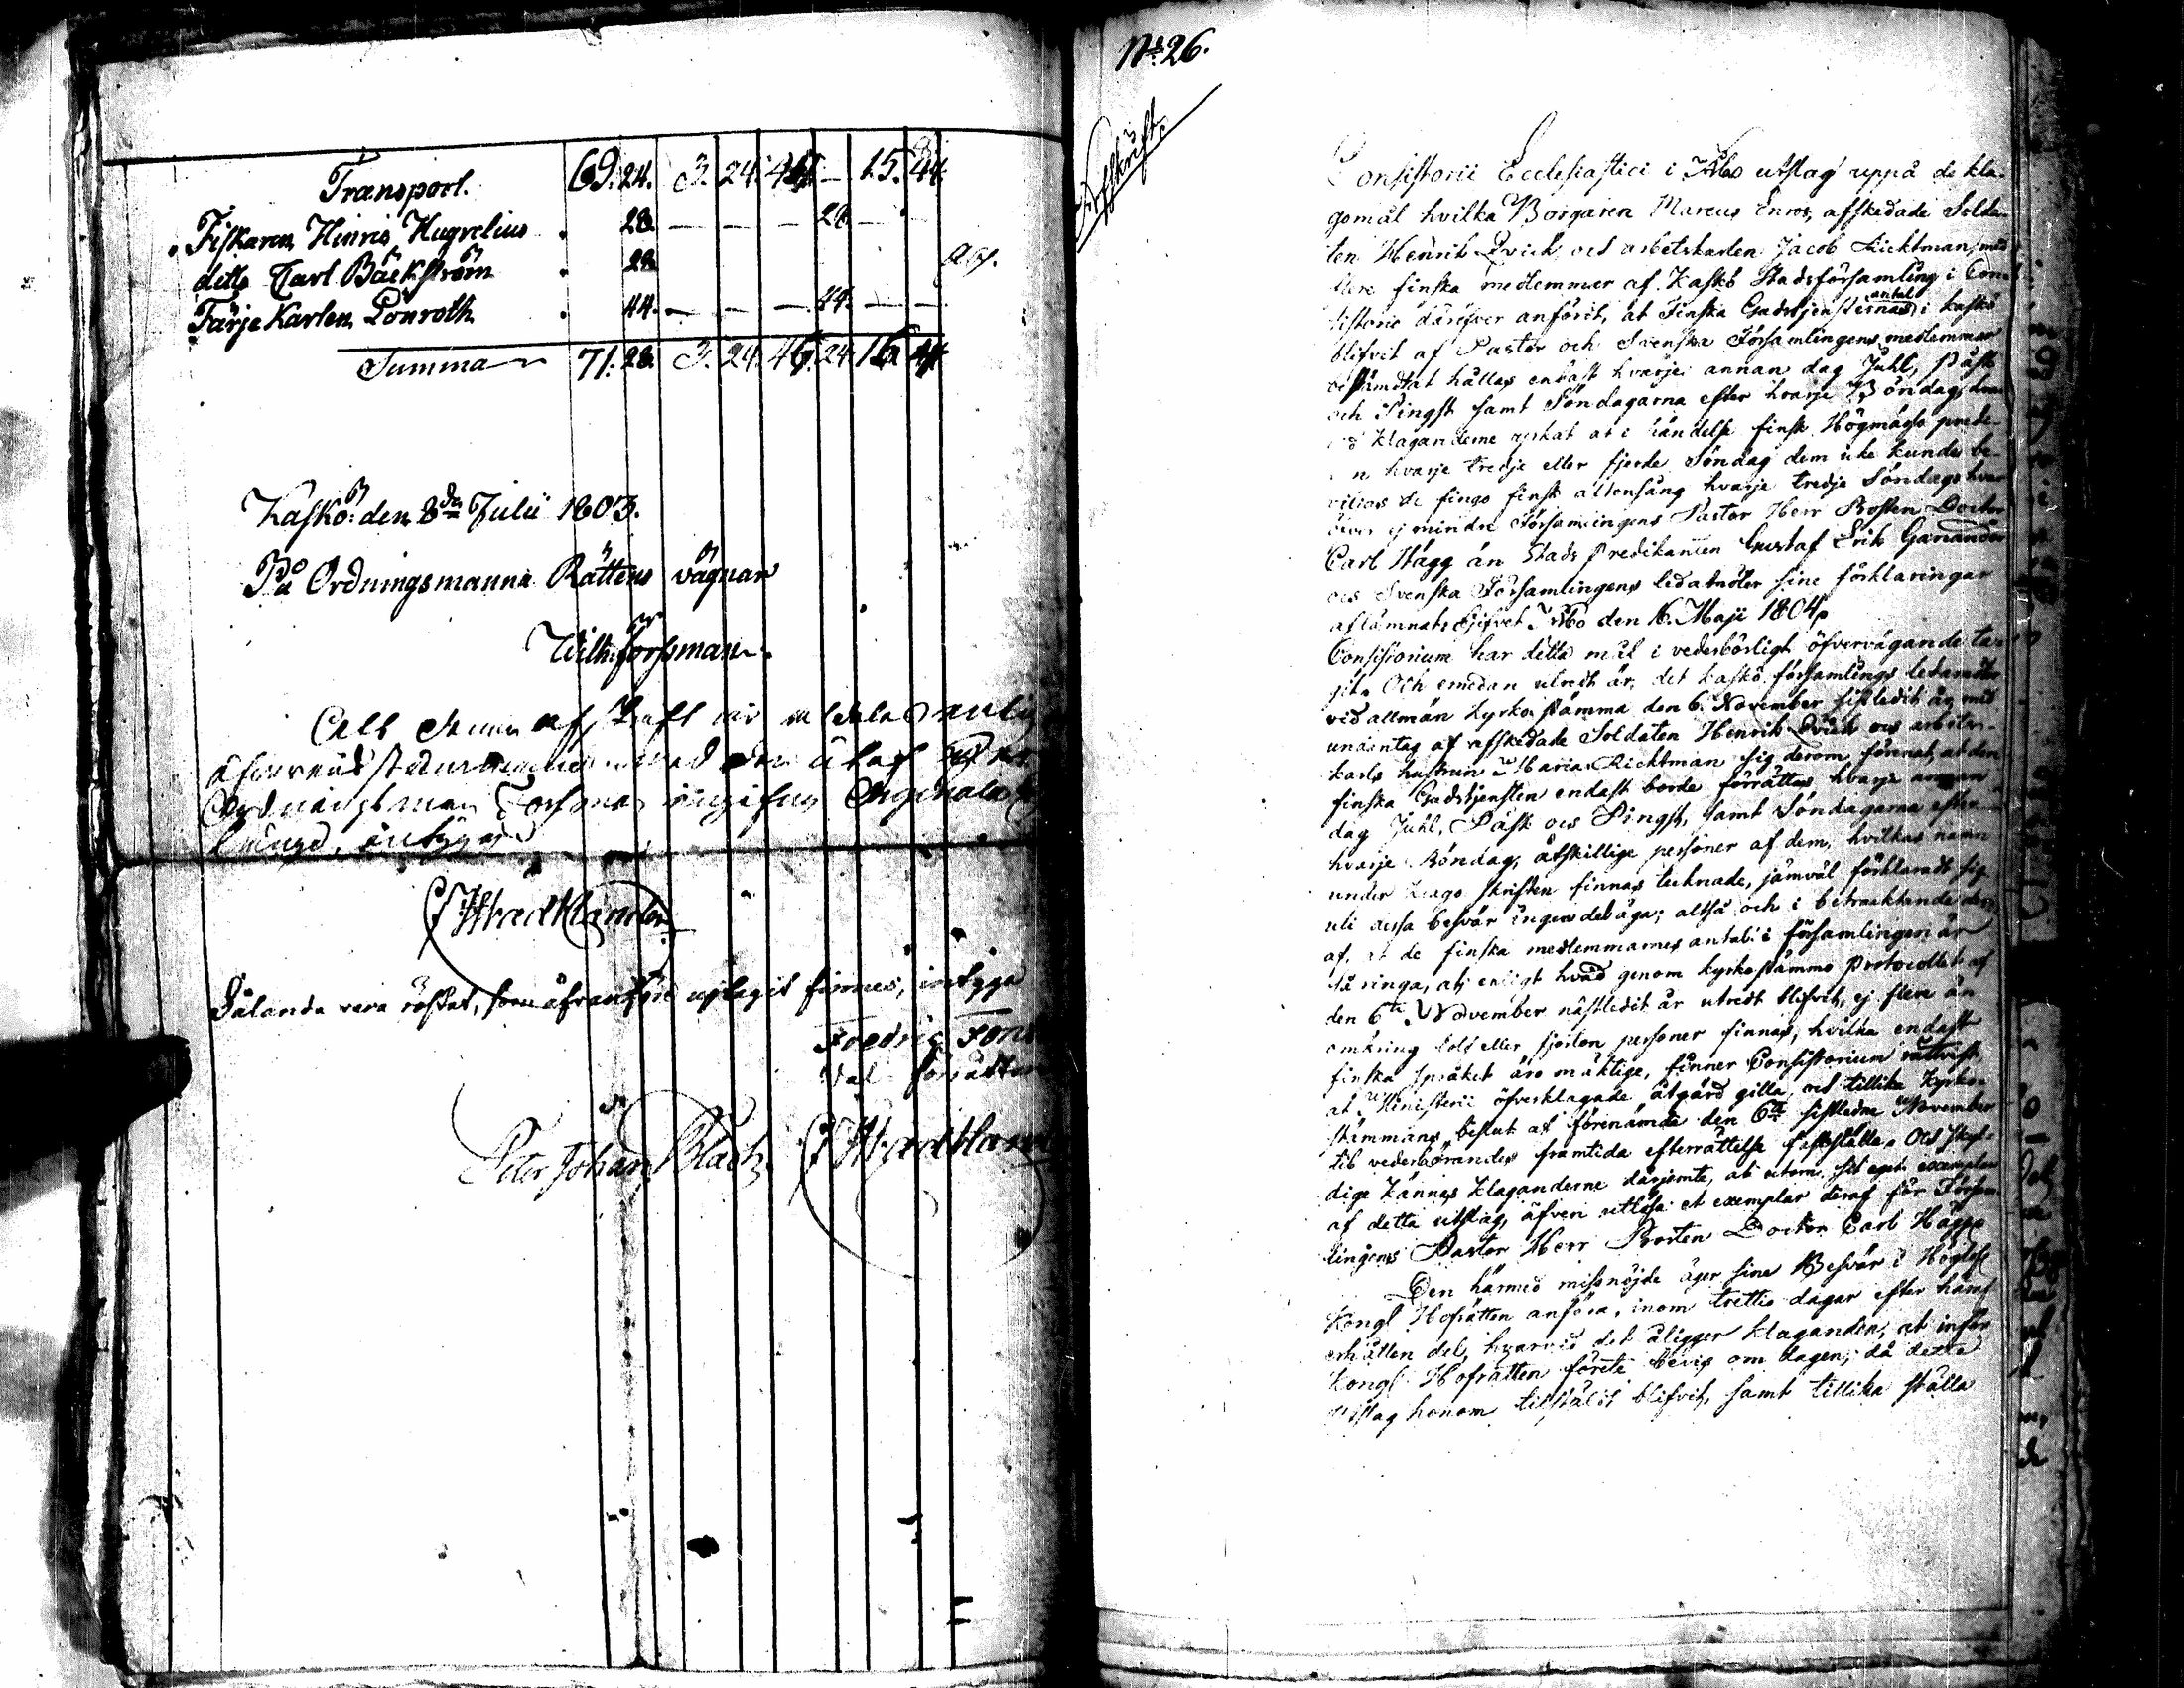 Transport. 69. 24. 3. 24. 46. — 15. 44.
Fiskaren Hinric Hugrelius . 28. — — — 28. — .
ditto Carl Bäckström . 28.
Färje Karlen Lönroth . 44. — — — 44. — —
Summa 71. 28. 3. 24. 46. 24. 16. 44.
Kaskö den 8de Julii 1803.
På Ordningsmanna Rättens vägnar
Wilh: Forssman
Sålunda vara röstat, som åfvanföre uptagit finnes, intyga
Fredric
Val förrättare
Peter Johan Blach
No 26.
Afskrift.
Consistorii Ecclesiastici i Åbo utslag uppå de kla-
gomål hvilka Borgaren Marcus Enros, afskedade Solda-
ten Henrik Qvick och arbetskarlen Jacob Ricktman, med
flere finska medlemmar af Kaskö Stadsförsamling i Con-
sistorio däröfver anfört, at Finska Gudstjensternas antal i Kaskö
blifvit af Pastor och Svenska Församlingens medlemmar
bestämdt at hållas endast hvarje annan dag Juhl, Påsk
och Pingst samt Söndagarna efter hvarje Böndag,
klaganderne yrkat at i händelse finsk Högmässo predi-
n hvarje tredje eller fjerde Söndag dem icke kunde be-
viljas de fingo finsk aftonsång hvarje tredje Söndag, hvar
öfver ej mindre Församlingens Pastor Herr Prosten Doctor
Carl Hägg än Stads Predikanten Gustaf Erik Ganander
och Svenska Församlingens ledamöter sine förklaringar
aflämnat; Gifvet i Åbo den 16. Maji 1804.
Consistorium har detta mål i vederbörligt öfvervägande ta-
git. Och emedan utredt är, det Kaskö församlings ledamöter
vid allmän Kyrko stämma den 6. November sistledit år, med
undantag af afskedade Soldaten Henrik Qvick och arbets-
karls hustrun Maria Ricktman sig derom förenat, at den
finska Gudstjensten endast borde förrättas hvarje annan
dag Juhl, Påsk och Pingst, samt Söndagarna efter
hvarje Böndag, åtskillige personer af dem, hvilkas namn
under Klago skriften finnas tecknade, jämväl förklarat sig
uti dessa besvär ingen del äga; altså och i betracktande der-
af, at de finska medlemmarnes antal i församlingen är
så ringa, at enligt hvad genom kyrkostämmo Protocollet af
den 6te November nästledit år utredt blifvit, ej flere än
omkring tolf eller fjorton personer finnas, hvilka endast
finska språket äro mäktige, finner Consistorium rättvist
at Ministerii öfverklagade åtgärd gilla, och tillika Kyrko-
stämmans beslut af förenämde den 6te sistledne November
til vederbörandes framtida efterrättelse fastställa. Och skyl-
dige kännas Klaganderne därjemte, at utom sit eget exemplar
af detta utslag, äfven utlösa et exemplar deraf för Försam-
lingens Pastor Herr Prosten Doctor Carl Hägg.
Den härmed missnöjde äger sine Besvär i Höglofl
Kongl Hofrätten anföra, inom trettio dagar efter häraf
erhållen del, hvarvid det åligger klaganden, at inför
Kongl Hofrätten förete bevis om dagen, då detta
utslag honom tilstäldt blifvit, samt tillika ställa